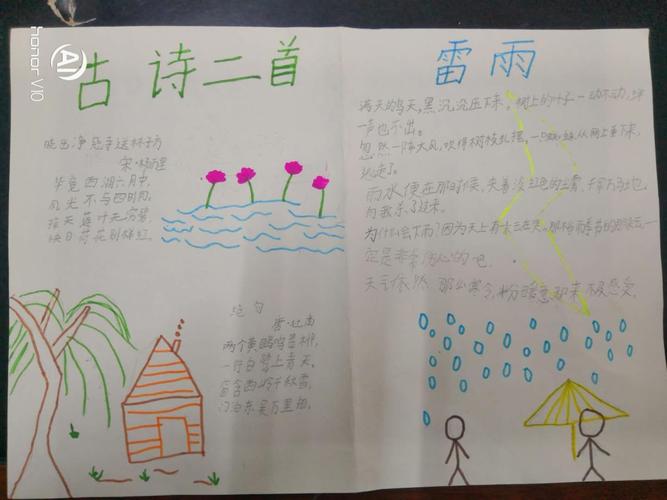 honor V10
AI
古诗二首
晓出净慈寺送林子方
宋·杨万里
毕竟西湖六月中,
风光不与四时同,
接天莲叶无穷碧,
映日荷花别样红。
绝句
唐·杜甫
两个黄鹂鸣翠柳,
一行白鹭上青天。
窗含西岭千秋雪,
门泊东吴万里船。
雷雨
满天的乌云,黑沉沉压下来。树上的叶子一动不动,蝉
一声也不出。
忽然一阵大风,吹得树枝乱摆。一只蜘蛛从网上垂下来,
逃走了。
而水便在那时侯,夹着
向我杀了过来。
为什么会下雨?因为天上有
定是非常伤心的吧.
天气依然 那么寒冷,